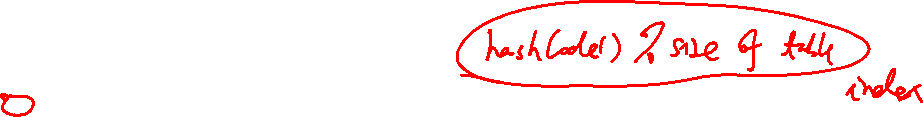 hashCode() % size of table
index